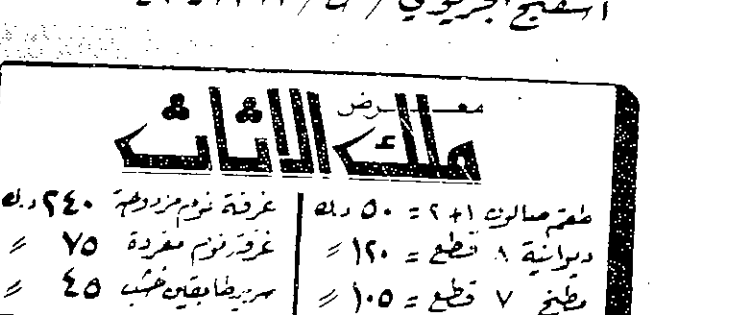 اسفنج الجريوي /
معرض
ملك الاثاث
طقم صالون ١+٢ = ٥٠ د.ك
ديوانية ٨ قطع = ١٢٠ 〃
مطبخ ٧ قطع = ١٠٥ 〃
غرفة نوم مزدوجة ٢٤٠ د.ك
غرفة نوم مفردة ٧٥ 〃
سرير طابقين خشب ٤٥ 〃